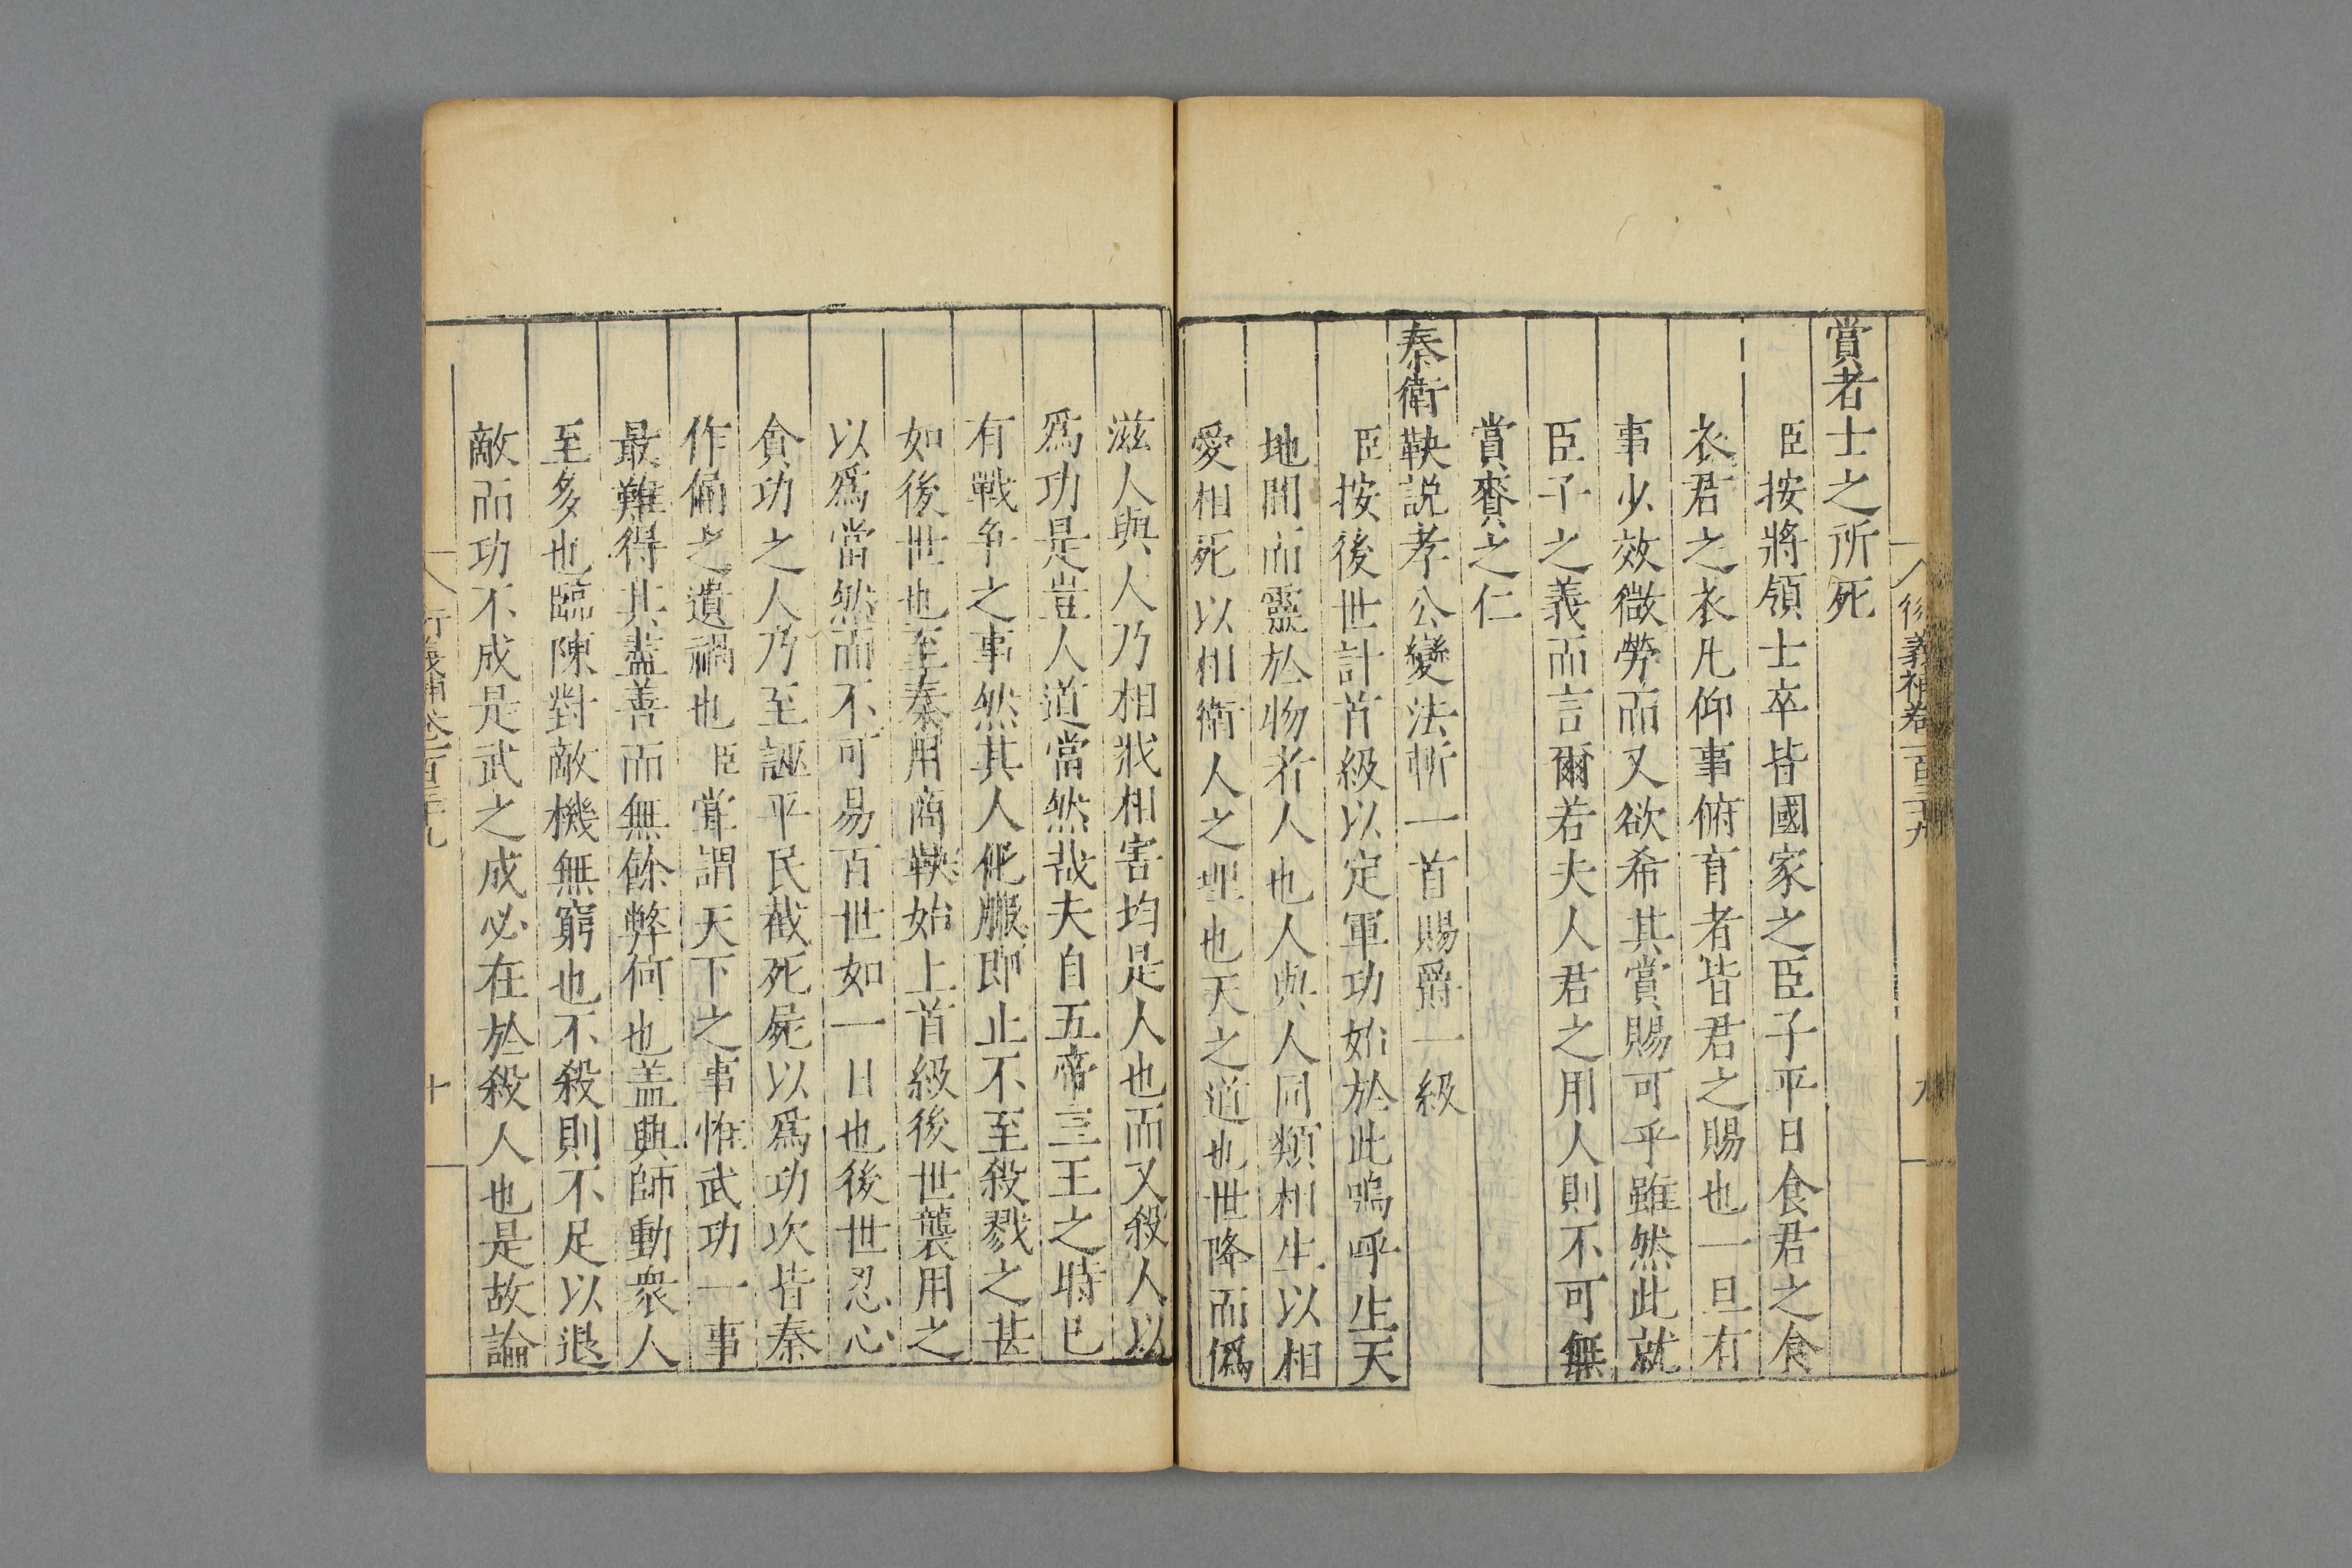 衍義補卷一百三十九
九
賞者士之所死
臣按將領士卒皆國家之臣子平日食君之食
衣君之衣凡仰事俯育者皆君之賜也一旦有
事少效微勞而又欲希其賞賜可乎雖然此就
臣子之義而言爾若夫人君之用人則不可無
賞賚之仁
秦衛鞅説孝公變法斬一首賜爵一級
臣按後世計首級以定軍功始於此嗚呼生天
地間而靈於物者人也人與人同類相生以相
愛相死以相衛人之理也天之道也世降而僞
滋人與人乃相戕相害均是人也而又殺人以
爲功是豈人道當然哉夫自五帝三王之時已
有戰争之事然其人俛服即止不至殺戮之甚
如後世也至秦用商鞅始上首級後世襲用之
以爲當然而不可易百世如一日也後世忍心
貪功之人乃至誣平民截死屍以爲功次皆秦
作俑之遺禍也臣嘗謂天下之事惟武功一事
最難得其盡善而無餘弊何也盖興師動衆人
至多也臨陳對敵機無窮也不殺則不足以退
敵而功不成是武之成必在於殺人也是故論
衍義補卷一百三十九
十